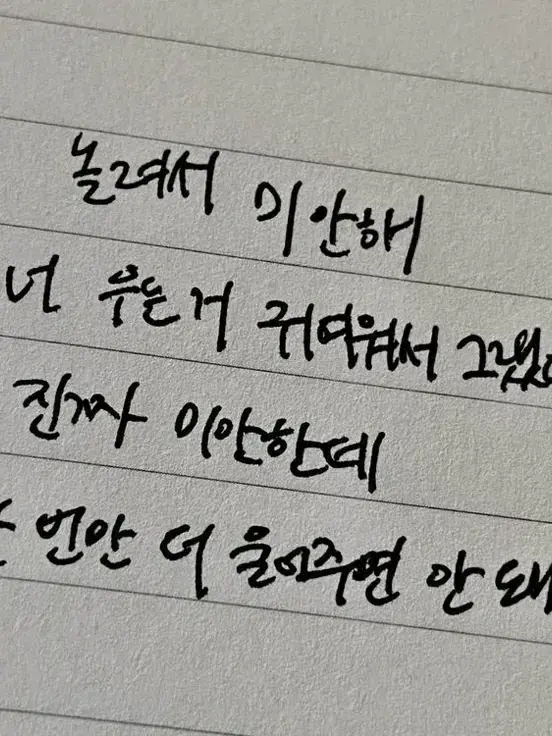 놀려서 미안해
너 우는거 귀여워서 그랬
진짜 미안한데
번만 더 울어주면 안돼